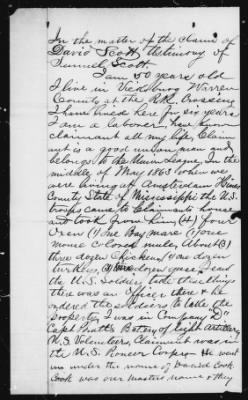 In the matter of the claim of
David Scott, testimony of
Samuel Scott.
I am 50 years old
I live in Vicksburg Warren
County at the RR. Crossing
I have lived here for six years
I am a Laborer, have known
claimant all my life, Claim
ant is a good union man and
belongs to the Union League. In the
middle of May 1863 when we
were living at Amsterdam Hinds
County State of Mississippi the U.S.
troops came to Claimants house
and took from him (4) four
oxen (1) one Bay mare (1) one
mouse colored mule, About (3)
three dozen chickens (1) one dozen
turkeys, dozen geese, I said
the U.S. Soldiers take these things
there was an officer there & he
ordered the soldiers to take the
property, I was in Company "D"
Capt Pratts Battery of Light Artillery
U.S. Volunteers, Claimant was in
the U.S. Pioneer Corps He went
in under the name of David Cook
Cook was our masters name & they